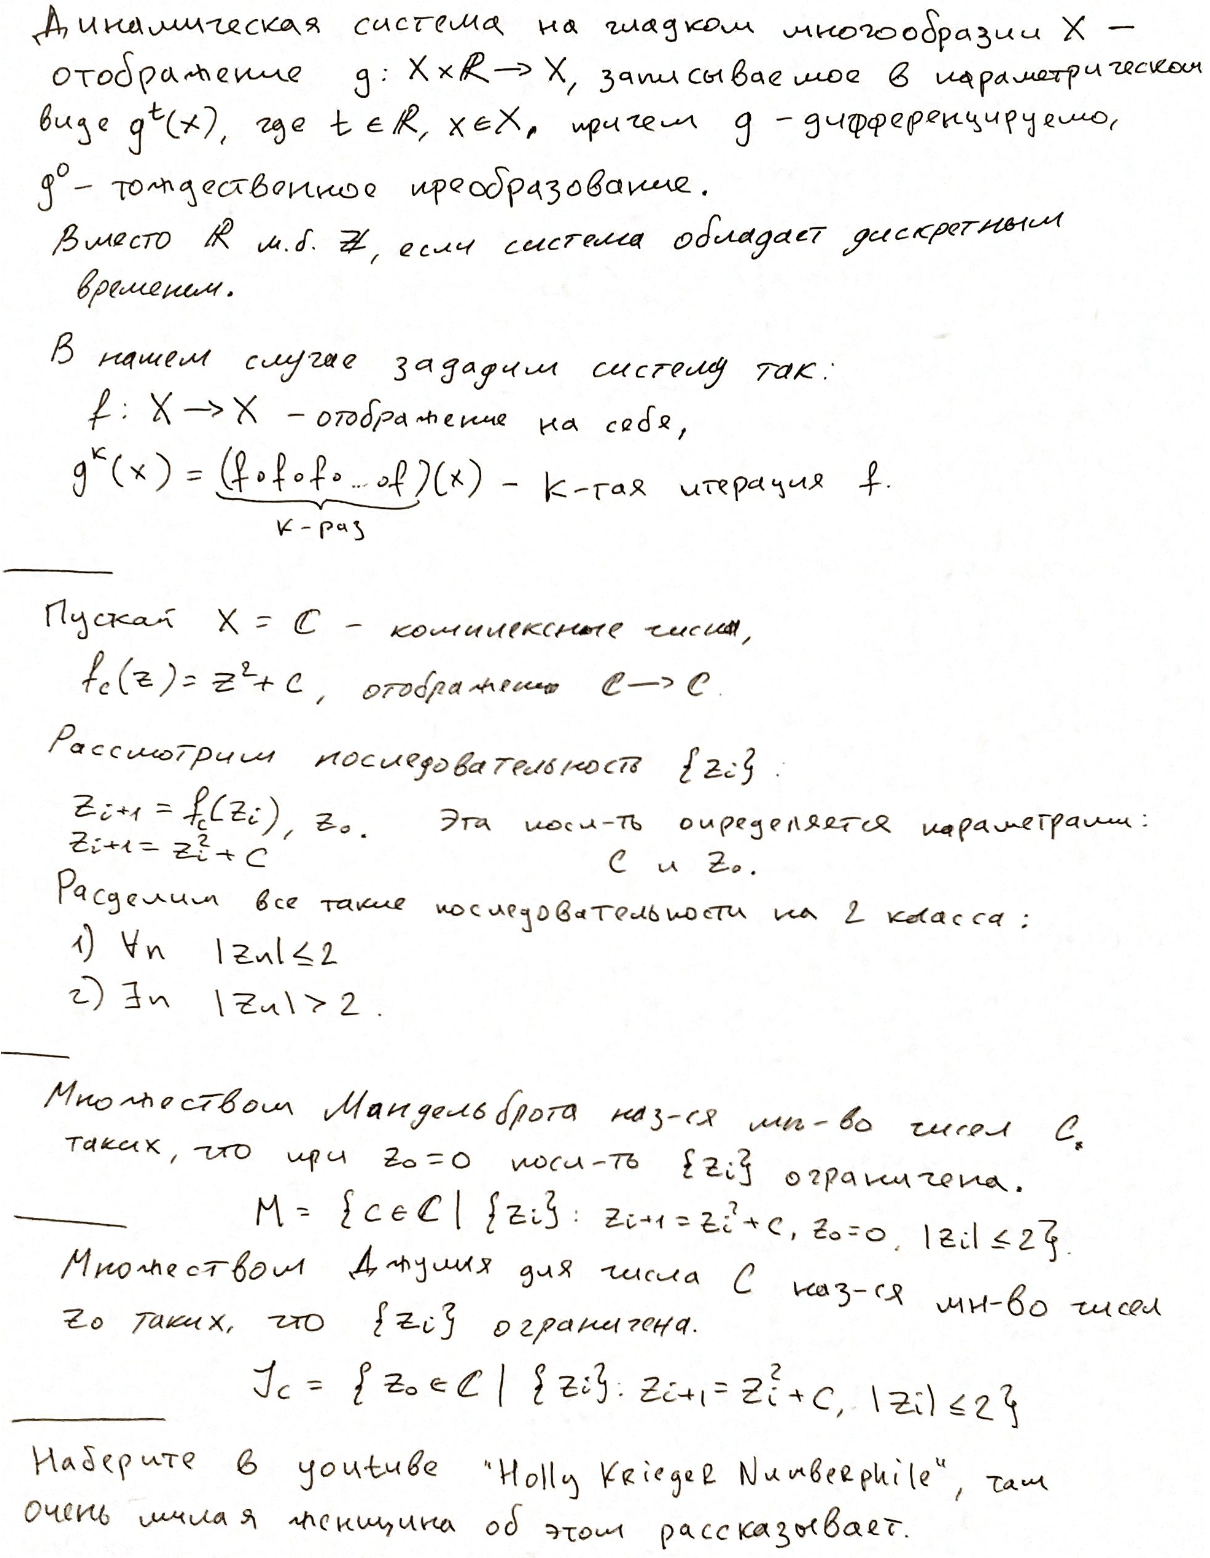 Динамическая система на гладком многообразии X —
отображение g: X×ℝ→X, записываемое в параметрическом
виде gᵗ(x), где t∈ℝ, x∈X, причем g – дифференцируемо,
g⁰ – тождественное преобразование.
Вместо ℝ м.б. ℤ, если система обладает дискретным
временем.
В нашем случае зададим систему так:
f: X→X – отображение на себя,
gᵏ(x) = (f∘f∘f∘...∘f)(x) – k-тая итерация f.
k-раз
Пускай X = ℂ – комплексные числа,
f_c(z) = z²+c, отображение ℂ→ℂ.
Рассмотрим последовательность {zi}:
z_{i+1} = f_c(z_i), z₀. Эта посл-ть определяется параметрами:
z_{i+1} = z_i²+c c и z₀.
Расделим все такие последовательности на 2 класса:
1) ∀n |zn|≤2
2) ∃n |zn|>2.
Множеством Мандельброта наз-ся мн-во чисел c,
таких, что при z₀=0 посл-ть {zi} ограничена.
M = {c∈ℂ | {zi}: z_{i+1}=z_i²+c, z₀=0, |zi|≤2}.
Множеством Джулия для числа c наз-ся мн-во чисел
z₀ таких, что {zi} ограничена.
J_c = {z₀∈ℂ | {zi}: z_{i+1}=z_i²+c, |zi|≤2}
Наберите в youtube "Holly Krieger Numberphile", там
очень милая женщина об этом рассказывает.